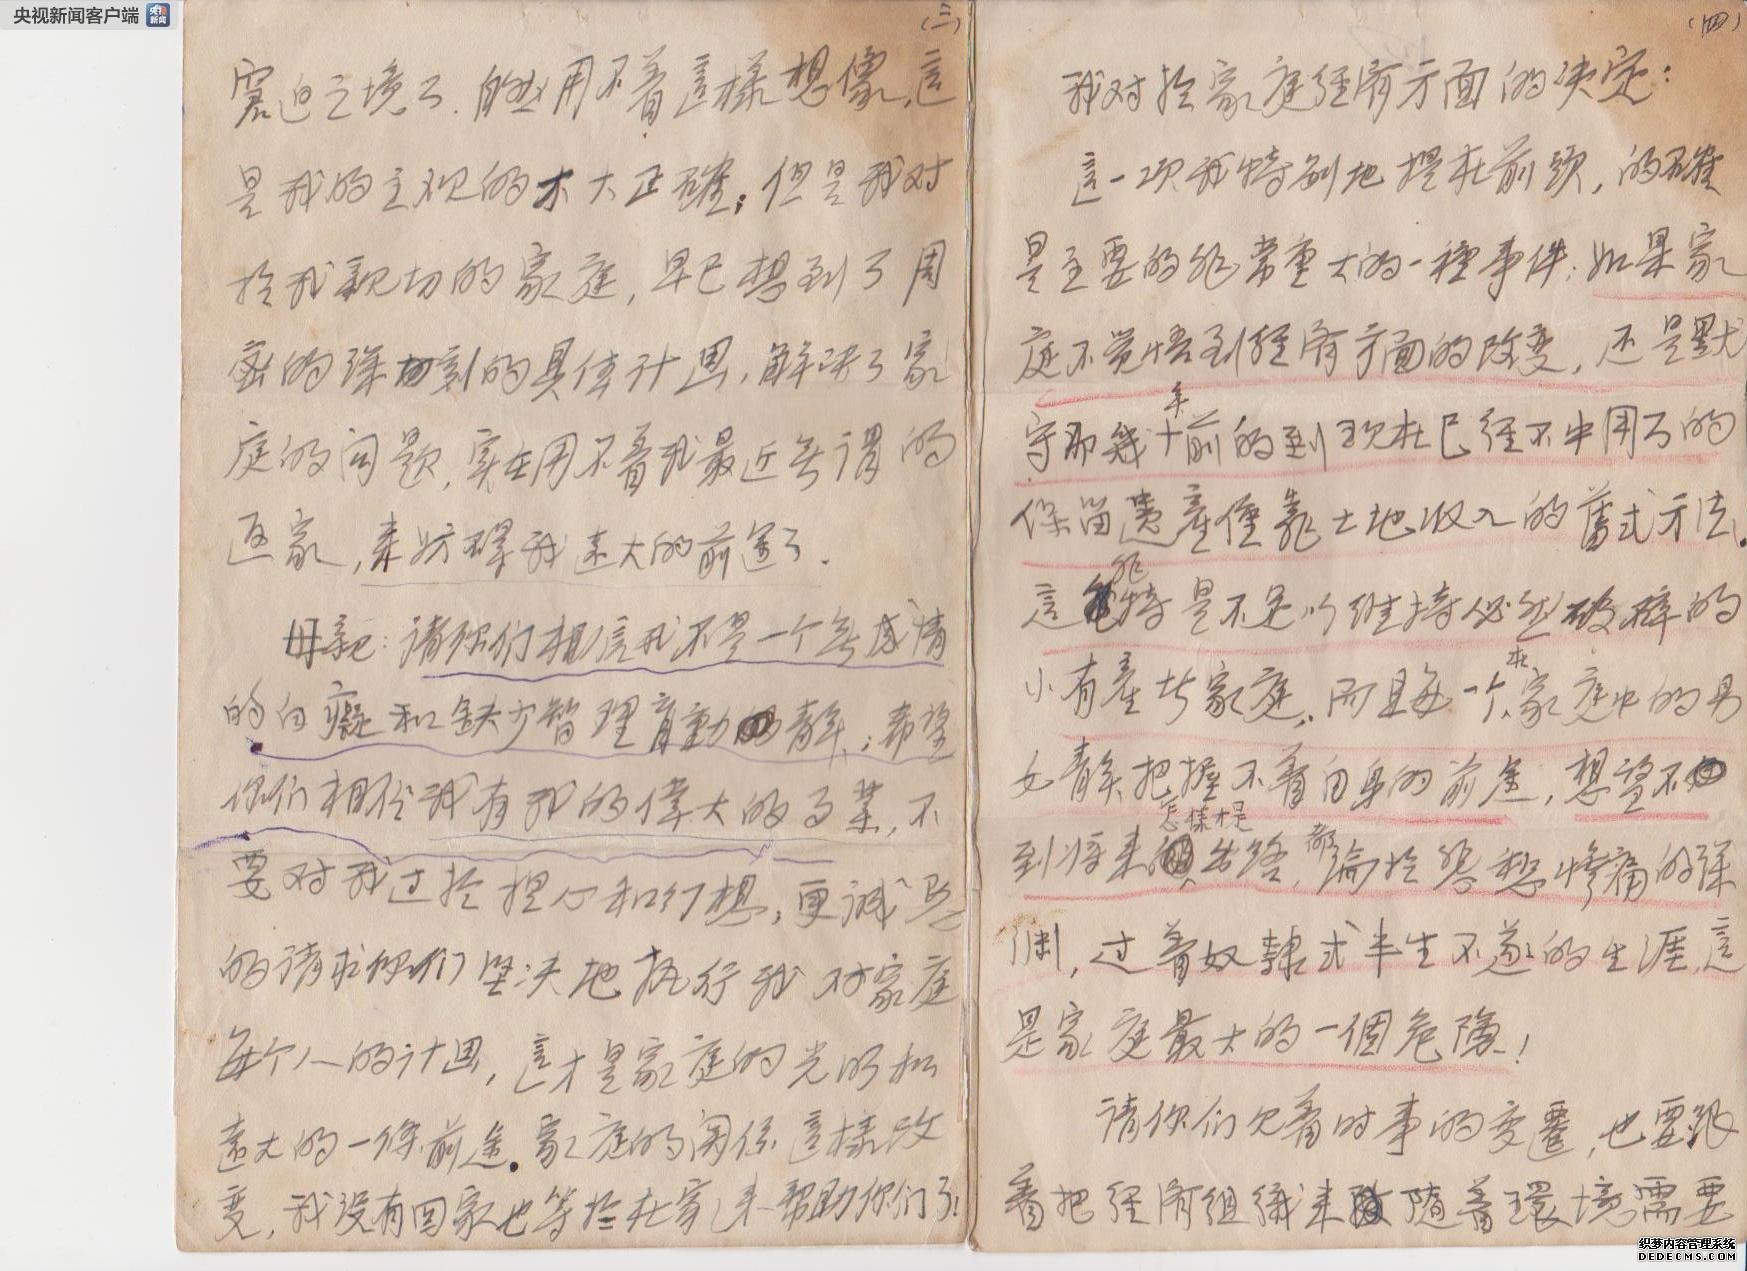 央视新闻客户端
央视
新闻
(三)
窘迫之境了.自然用不着這樣想像,這
是我的主观的不大正確;但是我对
於我親切的家庭,早已想到了周
密的深切刻的具体计画,解决了家
庭的问题,实在用不着我最近無谓的
返家,来妨碍我远大的前途了.
母亲:请你们相信我不是一个無感情
的白癡和缺少智理育動的青年;希望
你们相信我有我的偉大的事業,不
要对我过於担心和幻想,更誠恳
的请求你们坚决地执行我对家庭
每个人的计画,這才是家庭的光明和
远大的一條前途.家庭的関係這樣改
变,我没有回家也等於在家来帮助你们了!
(四)
我对於家庭经济方面的决定:
這一次我特别地提在前頭,的確
是主要的非常重大的一種事件:如果家
庭不觉悟到经济方面的改变,还是默
守那幾十年前的到现在已经不中用了的
保留遗產僅靠土地收入的舊式方法.
這非特是不足以维持必然破碎的
小有產者家庭,而且每一个在家庭中的男
女青年把握不着自身的前途,想望不
到将来怎樣才是出路,都淪於愁想慘痛的深
渊,过着奴隸式半生不遂的生涯,這
是家庭最大的一個危險!
请你们见着时事的变遷,也要跟
着把经济组織来随着環境需要
织梦内容管理系统
DEDECMS.COM